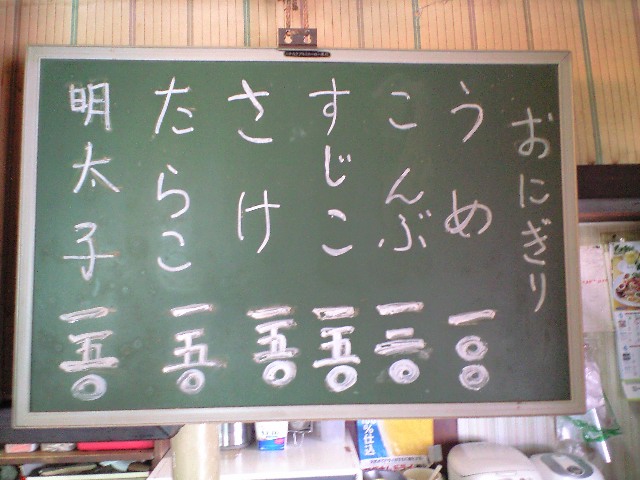 おにぎり
うめ 一〇〇
こんぶ 一二〇
すじこ 一五〇
さけ 一五〇
たらこ 一五〇
明太子 一五〇